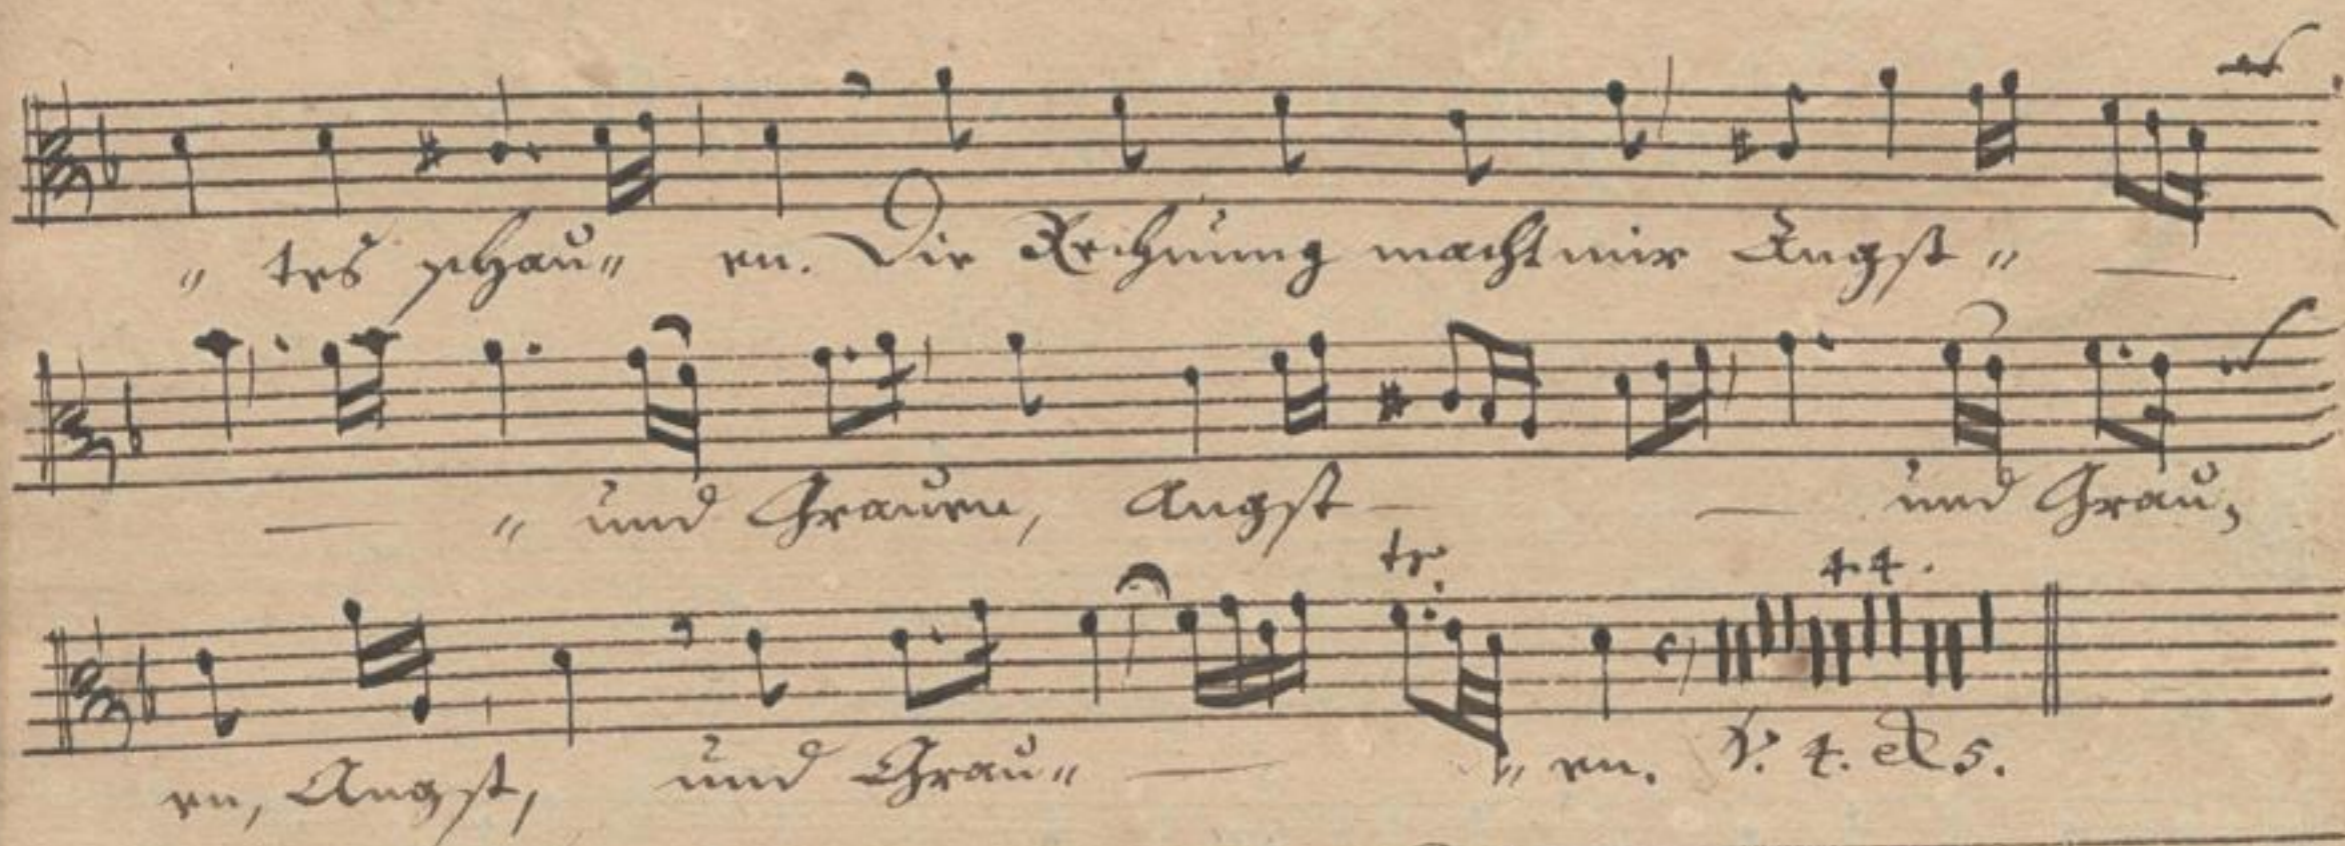 "tes schau" en. Die Rechnung macht mir Angst" —
— " und Grauen, Angst — — und Grau,
tr.
44.
en, Angst, und Grau" — " en. V. 4. & 5.